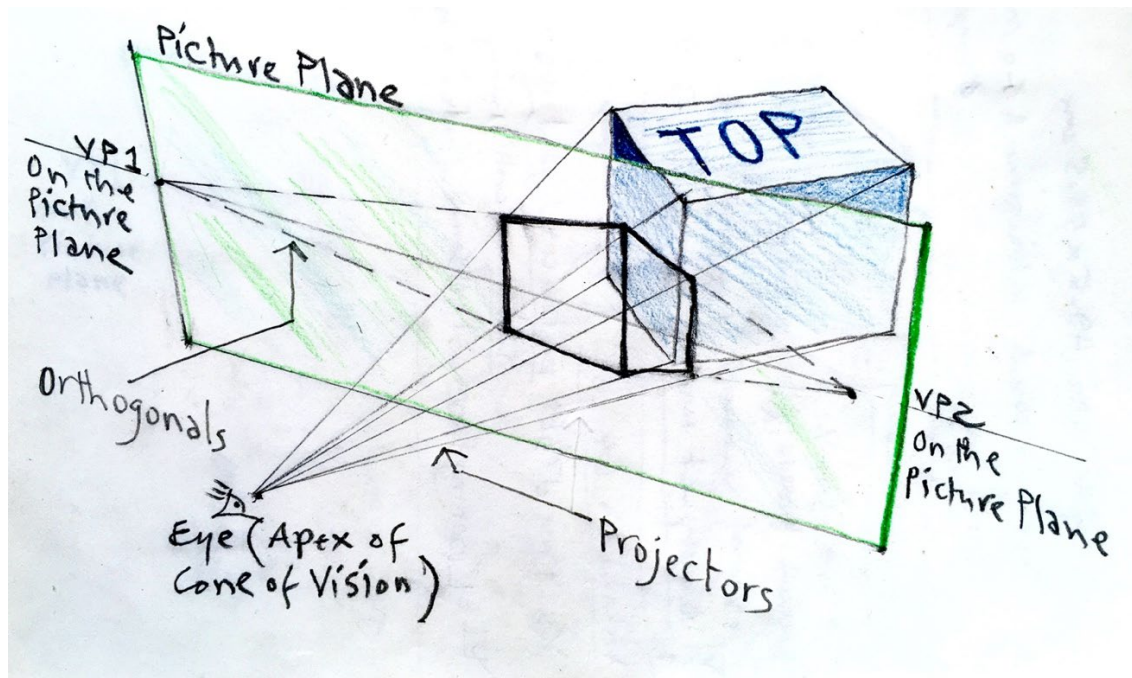 Picture Plane
TOP
VP1
On the
Picture
Plane
Orthogonals
VP2
On the
Picture Plane
Eye (Apex of
Cone of Vision)
Projectors